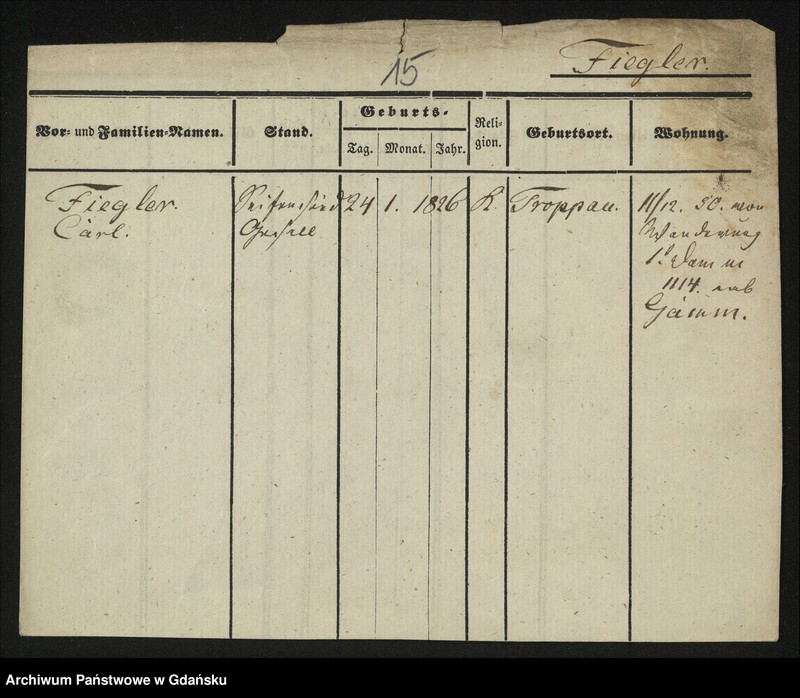 15
Fiegler.
Vor- und Familien-Namen.
Stand.
Geburts-
Tag.
Monat.
Jahr.
Reli-
gion.
Geburtsort.
Wohnung.
Fiegler.
Carl.
Seifensied
Gesell
24
1.
1826
K.
Troppau.
11/12. 50. von
Wanderung
1.
Damm
1114. aub
Archiwum Państwowe w Gdańsku